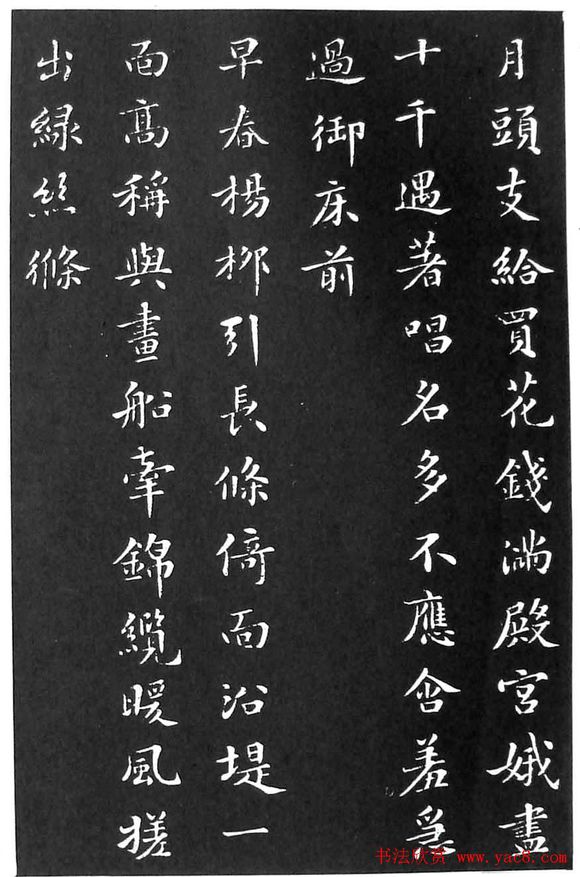 月頭支給買花錢滿殿宮娥盡
十千遇著唱名多不應含羞急
過御床前
早春楊柳引長條倚面沿堤一
面高稱與畫船牽錦纜暖風搓
出綠絲絛
书法欣赏 www.yac8.com